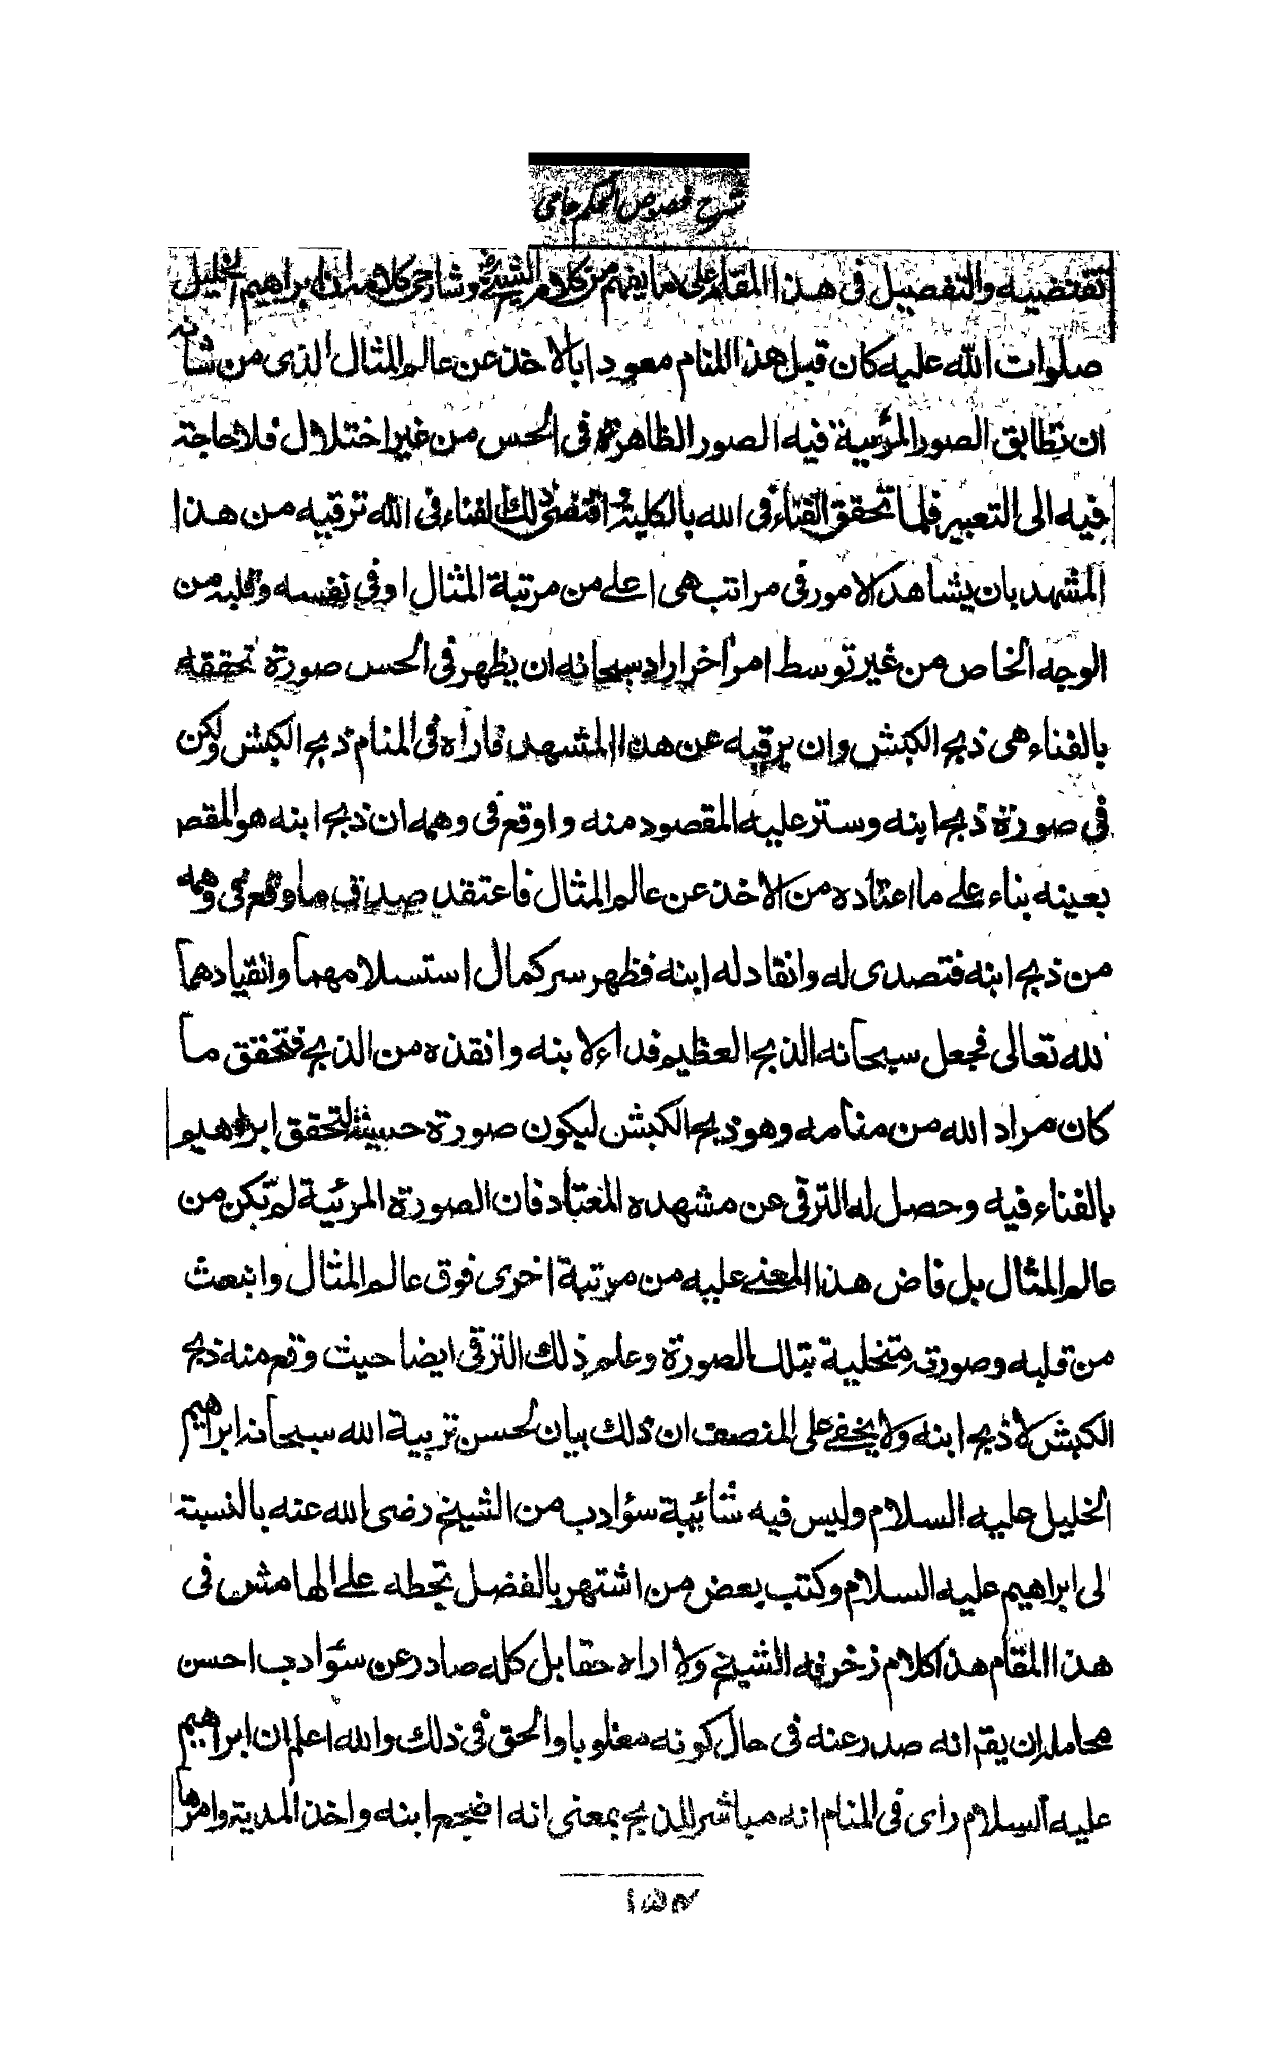 شرح فصوص الحكم جامى
تقتضيه والتفصيل فى هذا المقام على ما يفهم من كلام الشيخ وشارحى كلامه ان ابراهيم الخليل
صلوات الله عليه كان قبل هذا المنام معودا بالاخذ عن عالم المثال الذى من شانه
ان تطابق الصور المرئية فيه الصور الظاهرة فى الحس من غير اختلال فلا حاجة
فيه الى التعبير فلما تحقق الفناء فى الله بالكلية اقتضى ذلك الفناء فى الله ترقيه من هذا
المشهد بان يشاهد الامور فى مراتب هى اعلى من مرتبة المثال او فى نفسه وقلبه من
الوجه الخاص من غير توسط امر اخر اراد سبحانه ان يظهر فى الحس صورة تحققه
بالفناء هى ذبح الكبش وان يرقيه عن هذا المشهد فاراه فى المنام ذبح الكبش ولكن
فى صورة ذبح ابنه وستر عليه المقصود منه واوقع فى وهمه ان ذبح ابنه هو المقصد
بعينه بناء على ما اعتاده من الاخذ عن عالم المثال فاعتقد صدق ما وقع فى وهمه
من ذبح ابنه فتصدى له وانقاد له ابنه فظهر سر كمال استسلامهما وانقيادهما
لله تعالى فجعل سبحانه الذبح العظيم فداء لابنه وانقذه من الذبح فتحقق ما
كان مراد الله من منامه وهو ذبح الكبش ليكون صورة حسية لتحقق ابراهيم
بالفناء فيه وحصل له الترقى عن مشهده المعتاد فان الصورة المرئية لم تكن من
عالم المثال بل فاض هذا المعنى عليه من مرتبة اخرى فوق عالم المثال وانبعث
من قلبه وصورته متخيلية بتلك الصورة وعلم ذلك الترقى ايضا حيث وقع منه ذبح
الكبش لا ذبح ابنه ولا يخفى على المنصف ان ذلك بيان لحسن تربية الله سبحانه ابراهيم
الخليل عليه السلام وليس فيه شائبة سؤادب من الشيخ رضى الله عنه بالنسبة
الى ابراهيم عليه السلام وكتب بعض من اشتهر بالفضل بخطه على الهامش فى
هذا المقام هذا كلام زخرفه الشيخ ولا اراه حقا بل كله صادر عن سؤادب احسن
محامله ان يقم انه صدر عنه فى حال كونه مغلوبا والحق فى ذلك والله اعلم ان ابراهيم
عليه السلام راى فى المنام انه مباشر للذبح بمعنى انه اضجع ابنه واخذ المدية وامرها
١٥٤